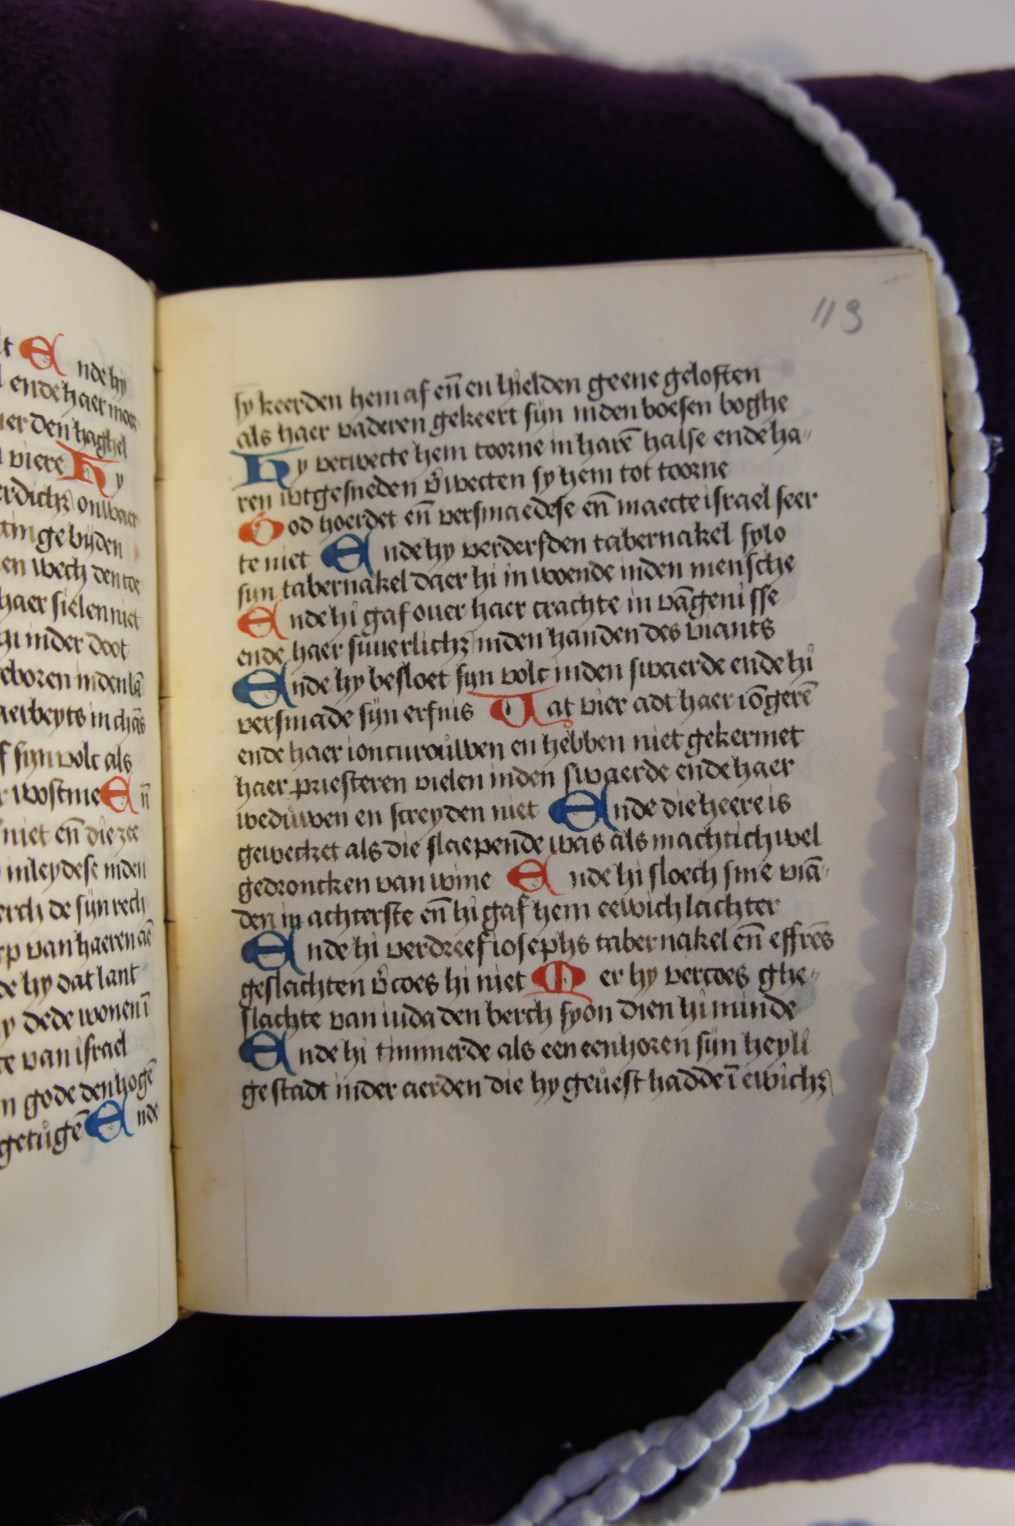 lt Ende hy
ende haer mor
uer den haghel
viere Hy
erdich onweer
amgebyden
en wech den toe
haer sielen niet
hi inder doot
eboren inden lā
aerbeyts in chās
f syn volc als
r wostine En̄
niet en̄ die zee
inleydese inden
erch de syn rech
rp van haeren ae
de hy dat lant
y dede wonen ī
te van israel
n gode den hogē
getůgē Ende
113
sy keerden hem af en̄ en hielden geene geloften
als haer vaderen gekeert syn inden boesen boghe
Hy verwecte hem toorne in harē halse ende ha-
ren wtgesneden v̄wecten sy hem tot toorne
God hoerdet en̄ versmaedese en̄ maecte israel seer
te niet Ende hy verdersden tabernakel sylo
syn tabernakel daer hi in woende inden mensche
Ende hi gaf ouer haer crachte in vāgenisse
ende haer suuerlichz inden handen des viants
Ende hy besloet syn volc inden swaerde ende hi
versmade syn erfnis Tat vier adt haer iōgerē
ende haer ioncurouwen en hebben niet gekermet
haer priesteren vielen inden swaerde ende haer
weduwen en screyden niet Ende die heere is
gewecket als die slaepende was als machtich wel
gedroncken van wine Ende hi sloech sine viā-
den in achterste en̄ hi gaf hem eewich lachter
Ende hi verdreef iosephs tabernakel en̄ effrēs
geslachten v̄coes hi niet Mer hy vercoes ghe-
slachte van iuda den berch syon dien hi minde
Ende hi timmerde als een eenhoren syn heyli
ge stadt inder aerden die hy geuest hadde ī ewichz